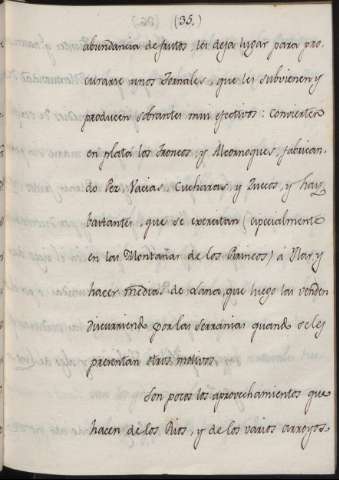 (35.)
abundancia de frutos les deja lugar para pro-
curarse unos Jornales, que les subvienen y
producen sobrantes mui efectivos: Convierten
en plata los Troncos, y Alcornoques, fabrican-
do Pez, Vacias, Cucharas, y Zuecos, y hay
bastantes, que se exercitan (especialmente
en las Montañas de los Pirineos) á Ilar, y
hacer medias de Lana, que luego las venden
discurriendo por las serranias quando se les
presentan otros motivos.
Son pocos los aprovechamientos que
hacen de los Rios, y de los varios arroyos.